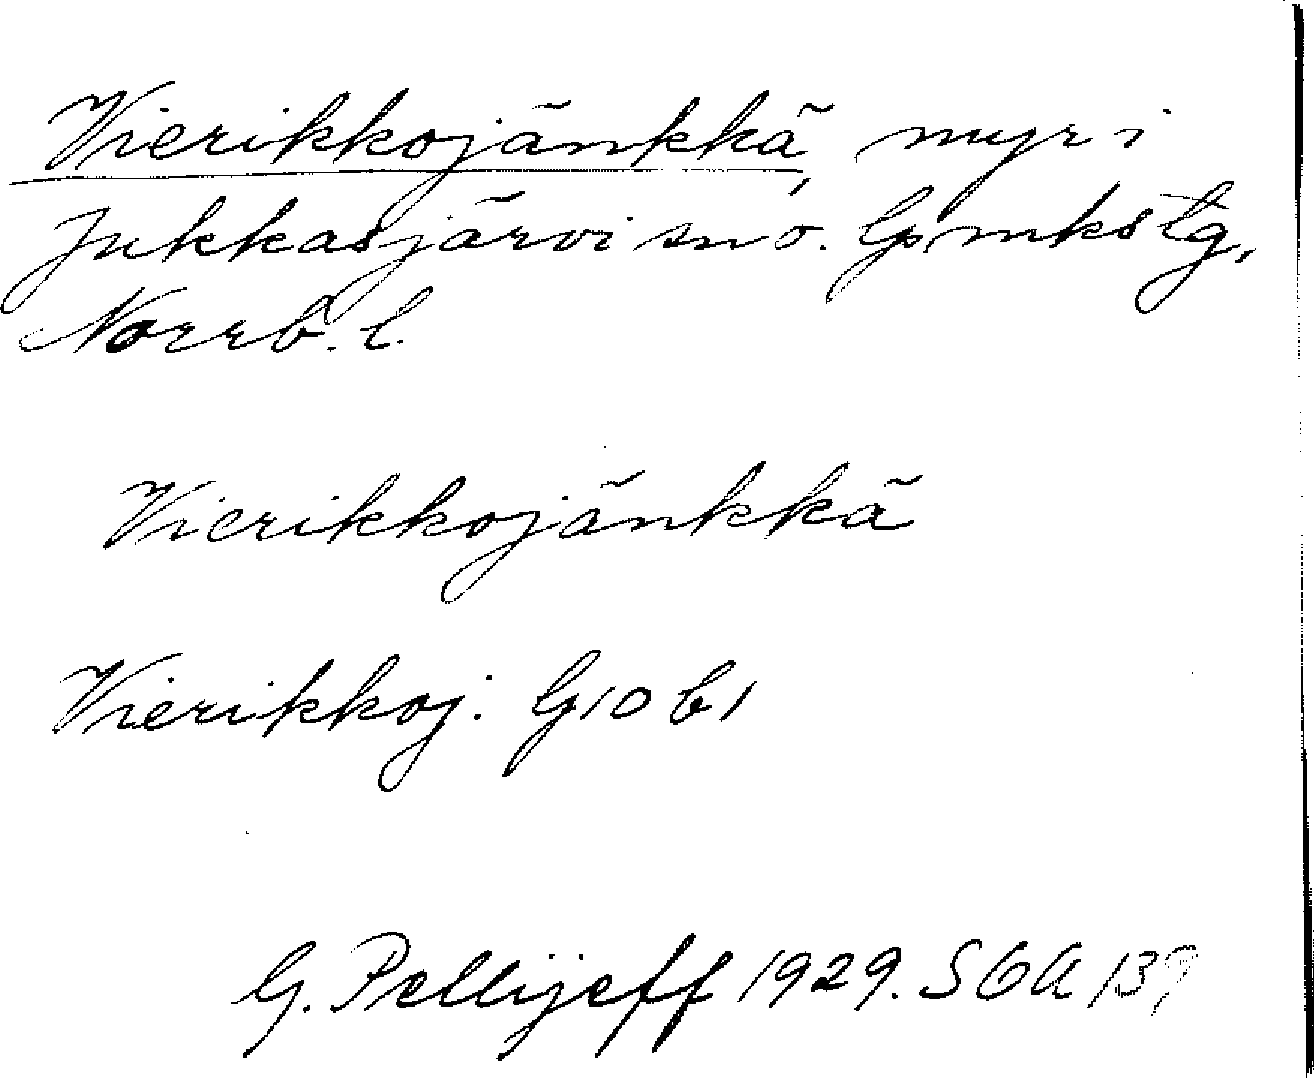 Vierikkojänkkä, myr i
Jukkasjärvi sn o. lpmkstg,
Norrb. l.
Vierikkojänkkä
Vierikkoj: G10 b1
G. Pellijeff 1929. SOA 139